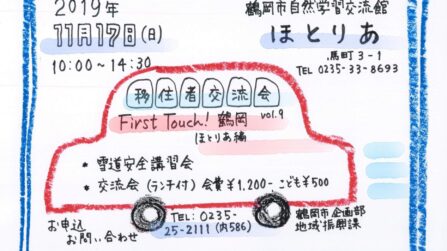 2019年
11月17日(日)
10:00～14:30
鶴岡市自然学習交流館
ほとりあ
馬町3-1
TEL 0235-33-8693
移住者交流会
First Touch! 鶴岡 vol.9
ほとりあ編
* 雪道安全講習会
* 交流会(ランチ付)会費¥1,200- こども¥500
お申込
お問い合わせ
TEL: 0235-
25-2111(内586)
鶴岡市企画部
地域振興課